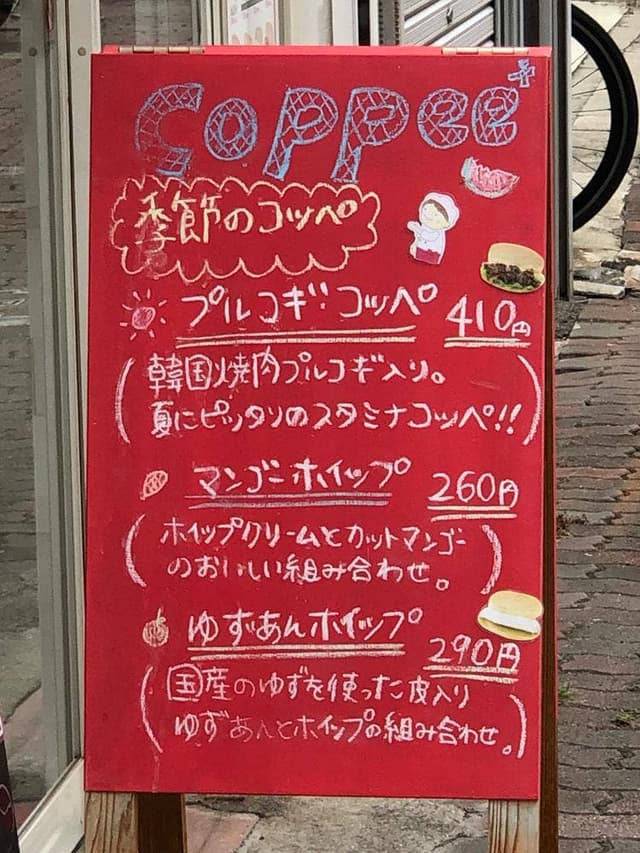 Coppee+
季節のコッペ
プルコギ・コッペ 410円
(韓国焼肉プルコギ入り。
夏にピッタリのスタミナコッペ!!)
マンゴーホイップ 260円
(ホイップクリームとカットマンゴー
のおいしい組み合わせ。)
ゆずあんホイップ 290円
(国産のゆずを使った皮入り
ゆずあんとホイップの組み合わせ。)